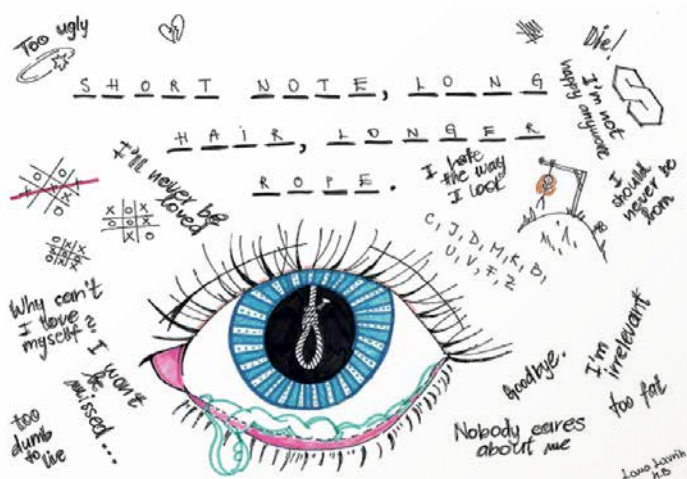 Too ugly
Die!
SHORT NOTE, LONG
HAiR, LONGER
ROPE.
I'm not
happy anymore
I'll never be
loved
I hate
the way
I look
I
should
never be
born
C, J, D, M, K, B,
U, V, F, Z
Why can't
I love
myself
I won't
be
missed...
too
dumb
to
live
Goodbye.
I'm
irrelevant
too fat
Nobody cares
about me